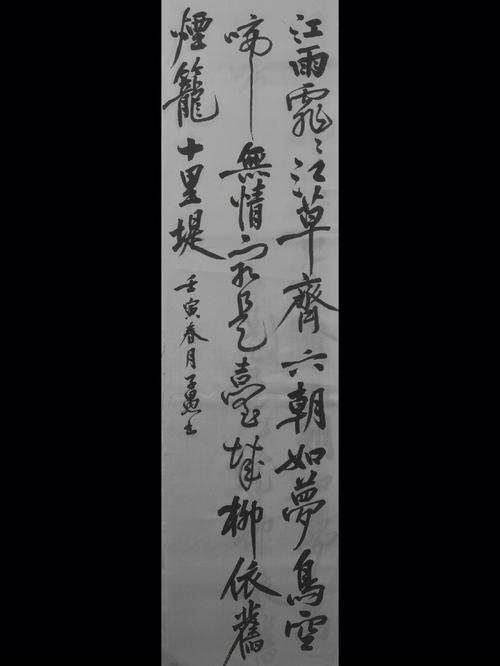 江雨霏〻江草齊六朝如夢鳥空
啼無情最是臺城柳依舊
煙籠十里堤
壬寅春月子愚书